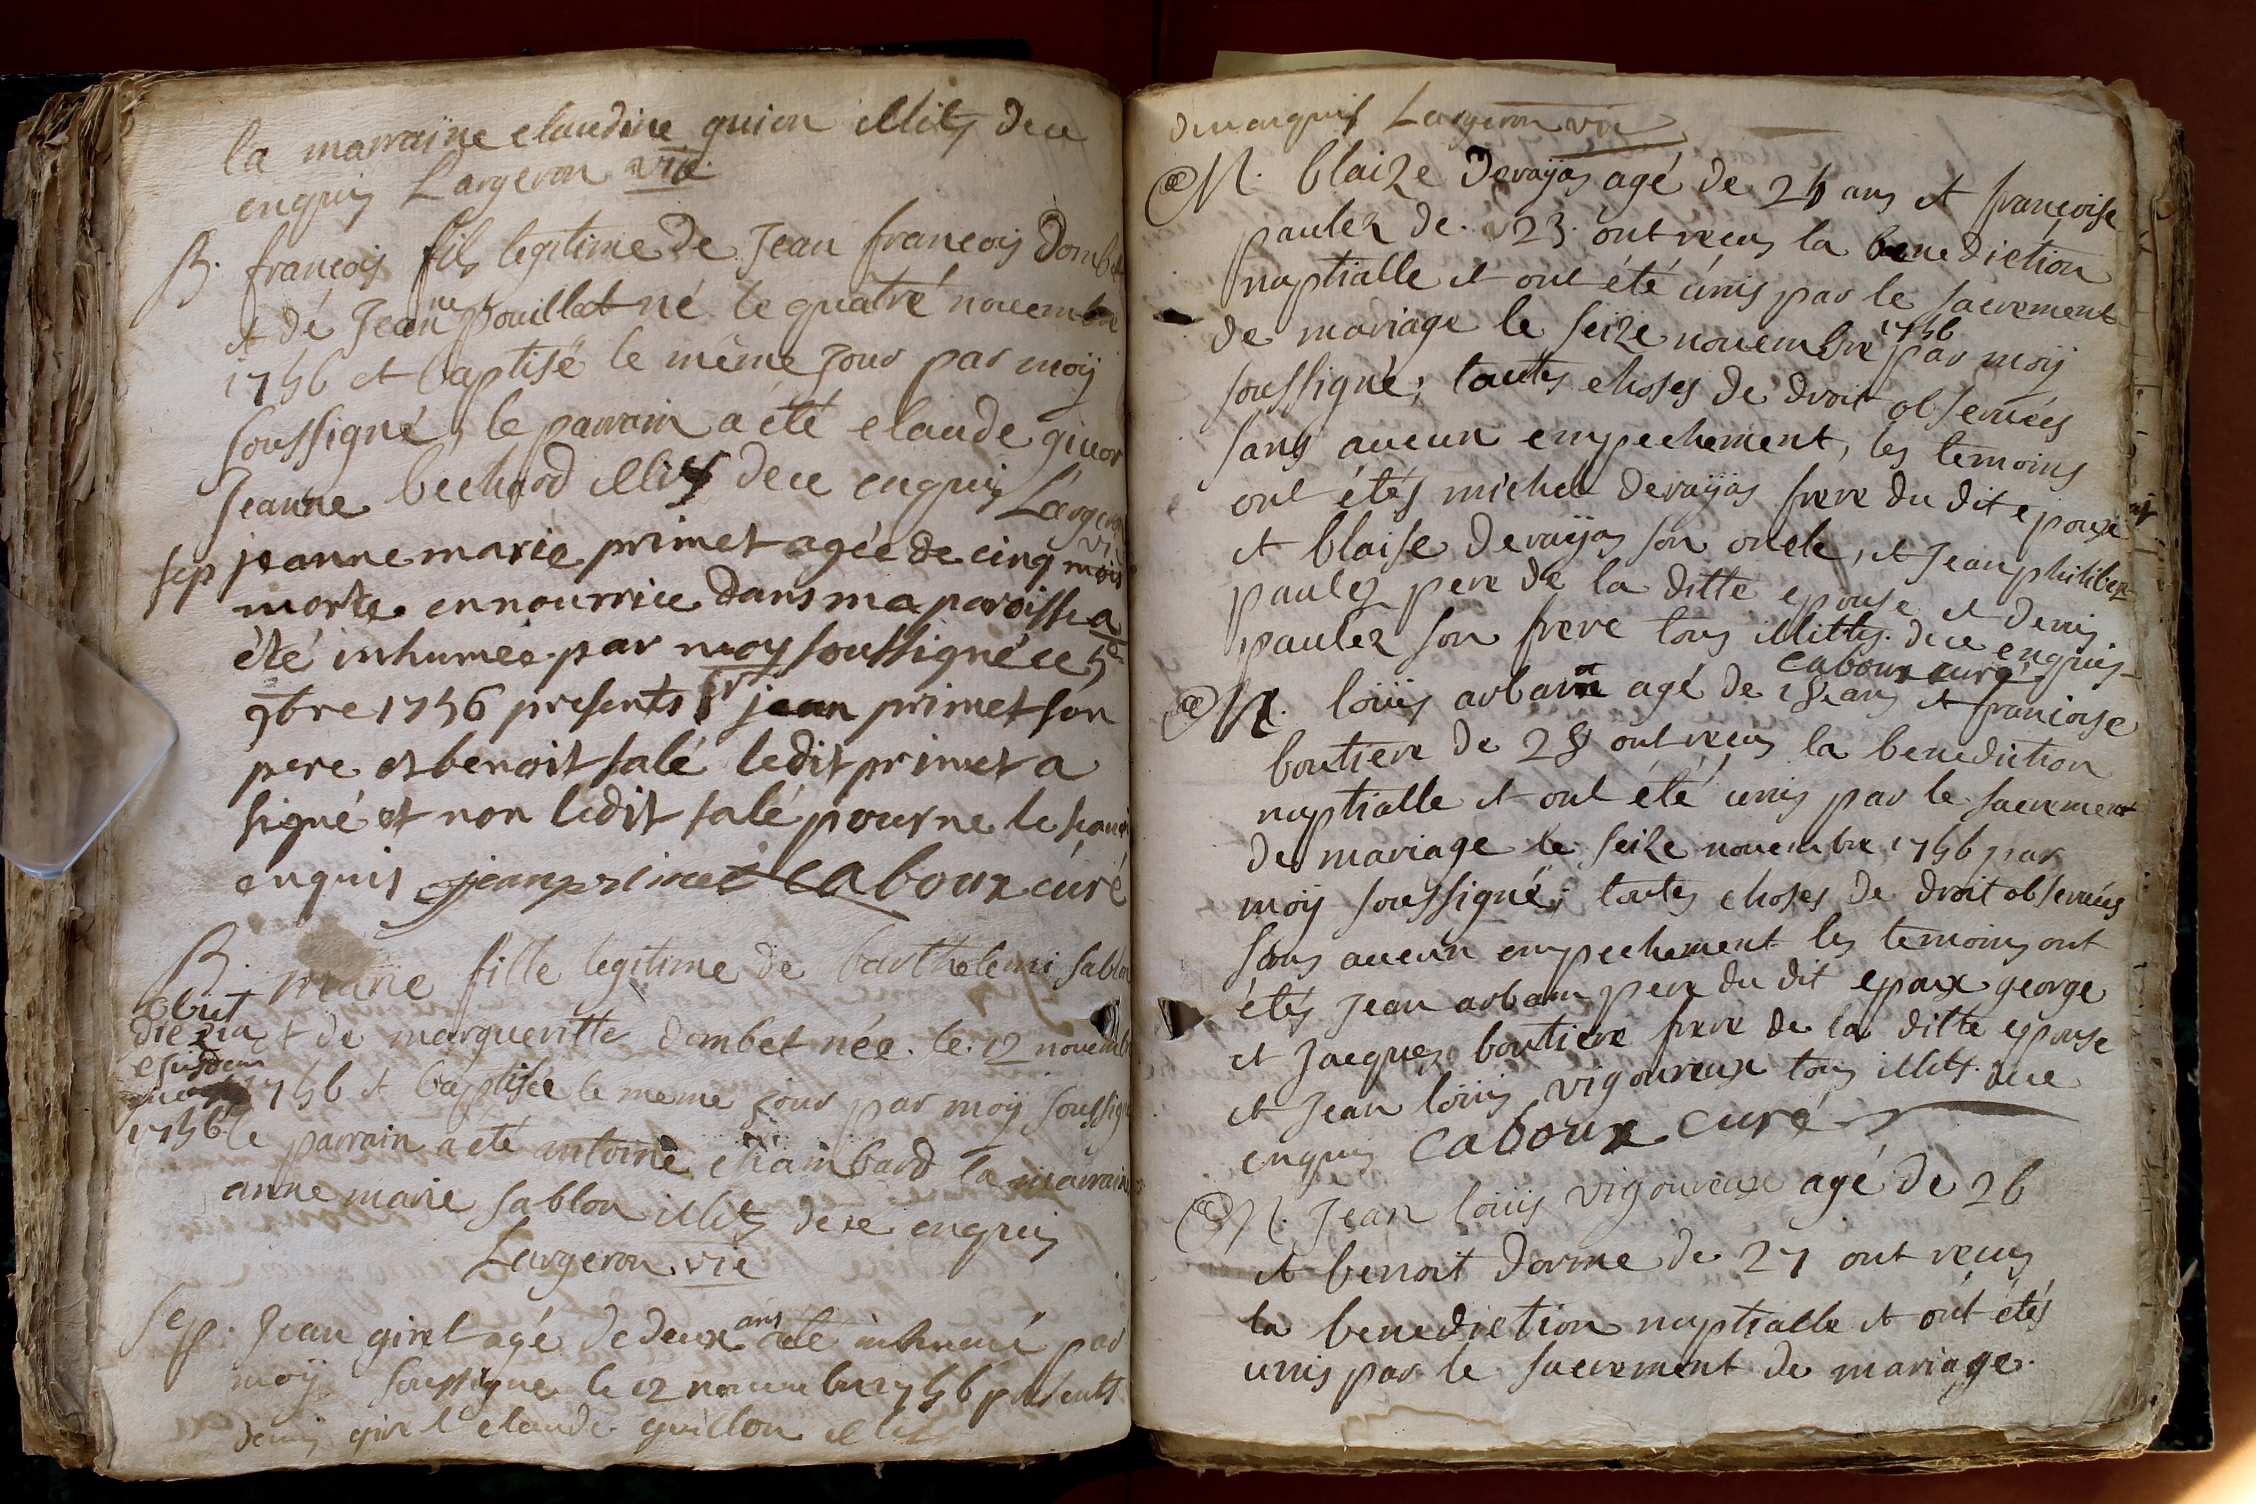 la marraine claudine guion illits dece
enquis Largeron vic
B. françois fils legitime de Jean françois Dombet
et dé Jeanne pouillat né le quatré novembre
1756 et baptisé le même jour par moÿ
soussigné, le parrain a été claude guion
Jeanne bechard illits dece enquis Largeron
vic
sep jeanne marie primet agée de cinq mois
morte en nourrice dans ma paroisse a
été inhumée par moy soussigné ce 5e
9bre 1756 presents sr jean primet son
pere et benoit salé ledit primet a
signé et non ledit salé pour ne le scavoir
enquis jean primet Caboux curé
B. marie fille legitime de barthelemi sablon
obiit
die
et de margueritte dombet née le 12 novembre
ejusdem
1756 et baptisée le meme jour par moÿ soussigné
1756
le parrain a été antoine chambard la marraine
anne marie sablon illits dece enquis
Largeron vic
Sep. Jean giret agé de deux ans a été inhumé par
moÿ soussigné le 12 novembre 1756 presents
denis giret claude guillon illits
dece enquis Largeron vic
M. blaize Devayas agé de 25 ans et françoise
paulez de 23 ont recus la benediction
nuptialle et ont été únis par le sacrement
de mariage le seize novembre 1756 par moÿ
soussigné; toutes choses de droit observées
sans aucun empechement, les temoins
ont étés michel devayas frere du dit epoux
et blaise devayas son oncle, et Jean philibert
paulez pere de la ditte epouse et denis
paulez son frere tous illitts. dece enquis
Caboux curé
M. loüis arban agé de 18 ans et françoise
boutiere de 28 ont recus la benediction
nuptialle et ont été unis par le sacrement
de mariage le seize novembre 1756 par
moÿ soussigné; toutes choses de droit observées
sans aucun empechement les temoins ont
étés Jean arban pere du dit epoux george
et Jacques boutiere frere de la ditte epouse
et Jean loüis vigoureux tous illits. dece
enquis Caboux curé
M. Jean loüis vigoureux agé de 26
et benoit dorme de 27 ont recus
la benediction nuptialle et ont étés
unis par le sacrement de mariage.